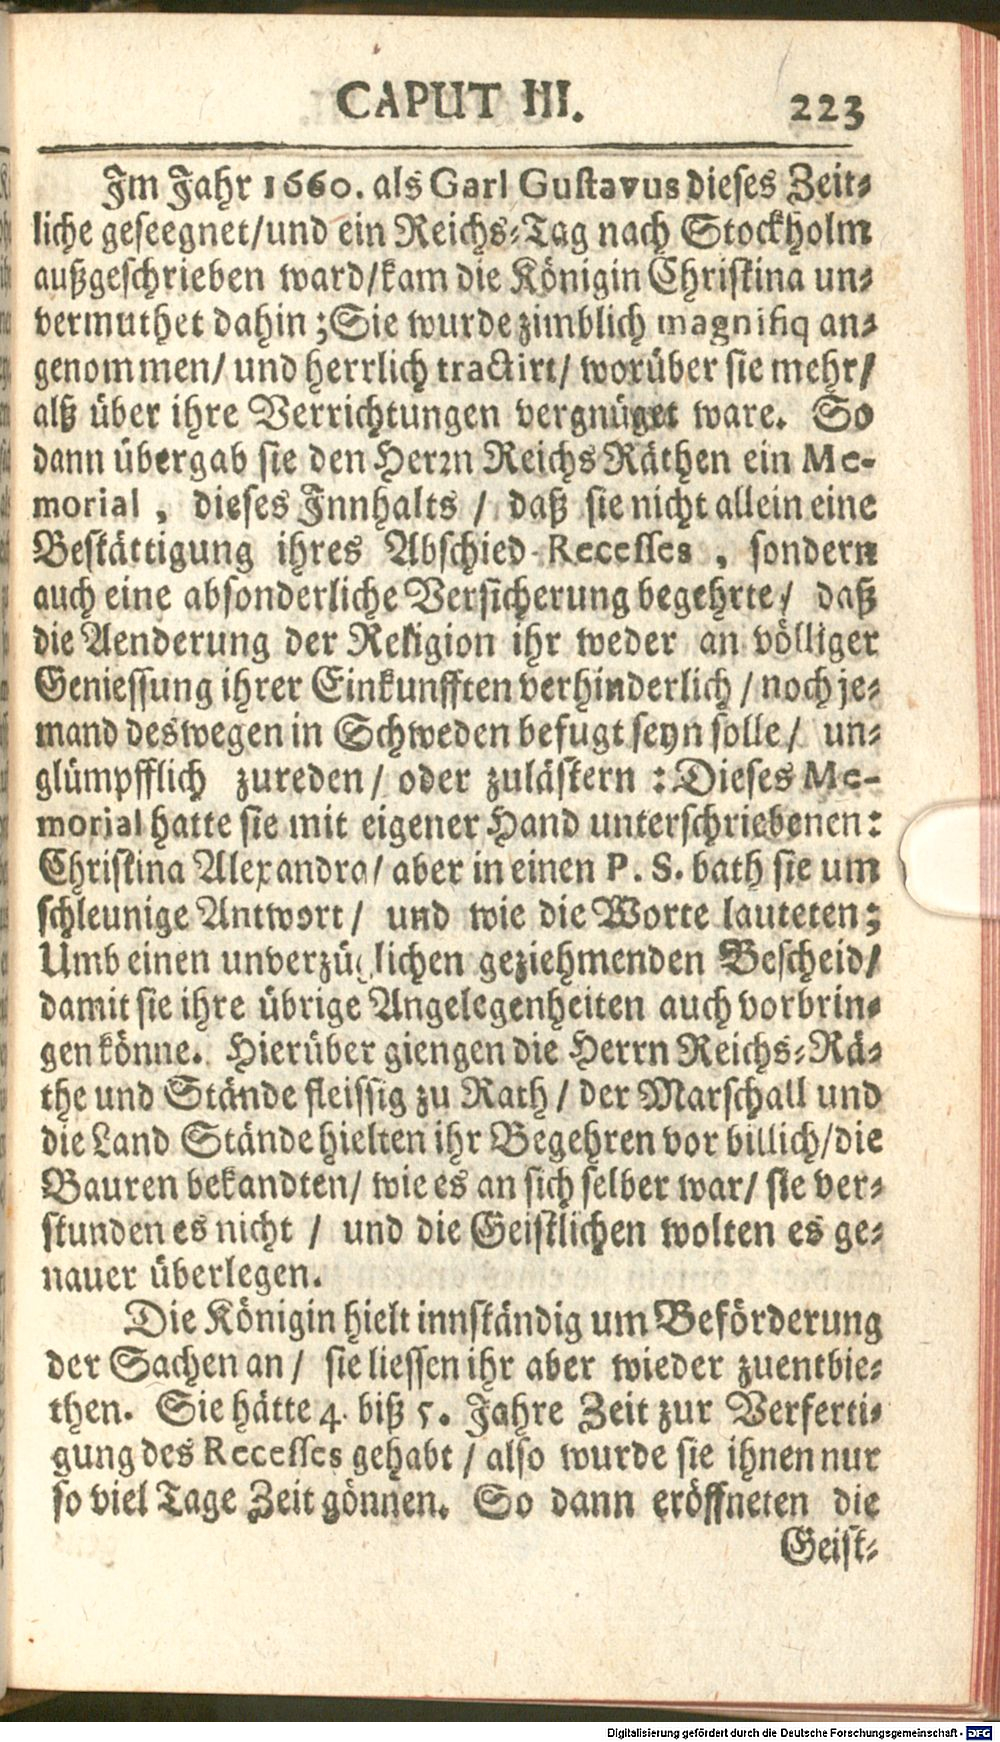 CAPUT III. 223
Im Jahr 1660. als Garl Gustavus dieses Zeit-
liche geseegnet/und ein Reichs-Tag nach Stockholm
außgeschrieben ward/kam die Königin Christina un-
vermuthet dahin; Sie wurde zimblich magnifiq an-
genommen/ und herrlich tractirt/ worüber sie mehr/
alß über ihre Verrichtungen vergnüget ware. So
dann übergab sie den Herrn Reichs Räthen ein Me-
morial, dieses Innhalts / daß sie nicht allein eine
Bestättigung ihres Abschied-Recesses, sondern
auch eine absonderliche Versicherung begehrte/ daß
die Aenderung der Religion ihr weder an völliger
Geniessung ihrer Einkunfften verhinderlich / noch je-
mand deswegen in Schweden befugt seyn solle/ un-
glümpfflich zureden/ oder zulästern : Dieses Me-
morial hatte sie mit eigener Hand unterschriebenen:
Christina Alexandra/ aber in einen P. S. bath sie um
schleunige Antwort/ und wie die Worte lauteten;
Umb einen unverzüglichen geziehmenden Bescheid/
damit sie ihre übrige Angelegenheiten auch vorbrin-
gen könne. Hierüber giengen die Herrn Reichs-Rä-
the und Stände fleissig zu Rath/ der Marschall und
die Land Stände hielten ihr Begehren vor billich/die
Bauren bekandten/ wie es an sich selber war/ sie ver-
stunden es nicht / und die Geistlichen wolten es ge-
nauer überlegen.
Die Königin hielt innständig um Beförderung
der Sachen an/ sie liessen ihr aber wieder zuentbie-
then. Sie hätte 4. biß 5. Jahre Zeit zur Verferti-
gung des Recesses gehabt / also wurde sie ihnen nur
so viel Tage Zeit gönnen. So dann eröffneten die
Geist-
Digitalisierung gefördert durch die Deutsche Forschungsgemeinschaft - DFG